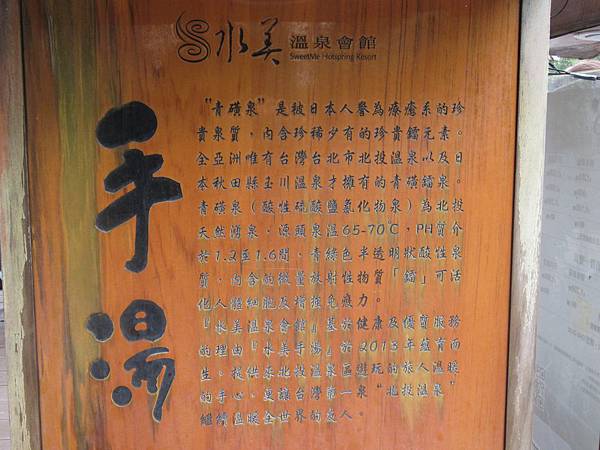 水美 溫泉會館
SweetMe Hotspring Resort
手湯
"青磺泉"是被日本人譽為療癒系的珍
貴泉質，內含珍稀少有的珍貴鐳元素。
全亞洲唯有台灣台北市北投溫泉以及日
本秋田縣玉川溫泉才擁有的青磺鐳泉。
青磺泉（酸性硫酸鹽氯化物泉）為北投
天然湧泉，源頭泉溫65-70℃，PH質介
於1.2至1.6間，青綠色半透明狀酸性泉
質，內含的微量放射性物質「鐳」可活
化人體細胞及增強免疫力。
「水美溫泉會館」基於健康及優質服務
的理由「水美手湯」於2013年蘊育而
生，提供來北投泉區遊玩的旅人溫暖
的手心，讓台灣第一泉"北投溫泉"
繼續溫暖全世界的友人